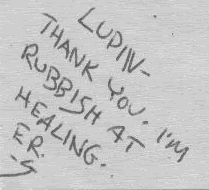 LUPIN-
THANK YOU. I'M
RUBBISH AT
HEALING.
E.R.
-S